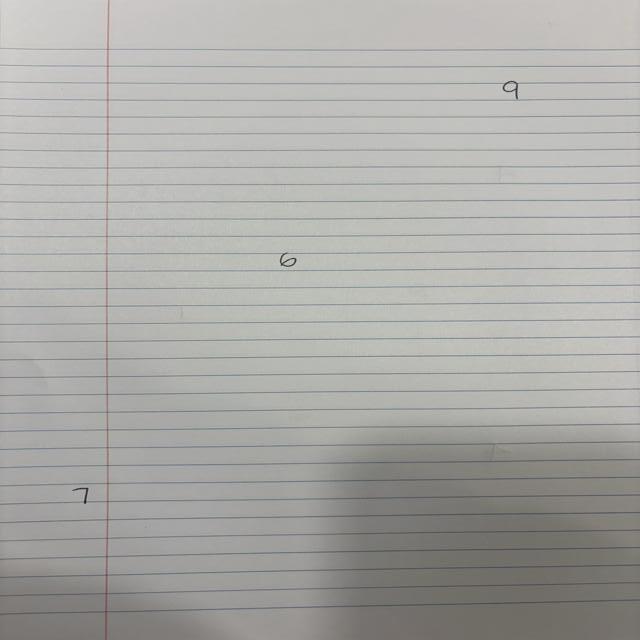 9
6
7